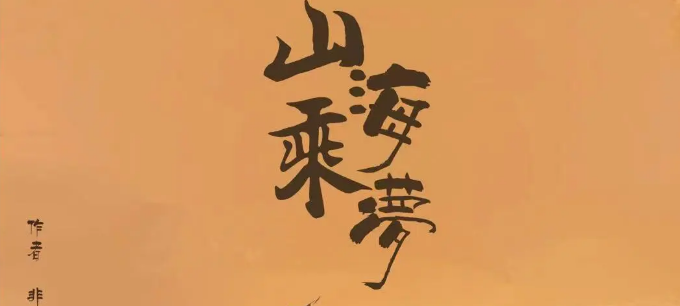 山海乘夢
作者 非